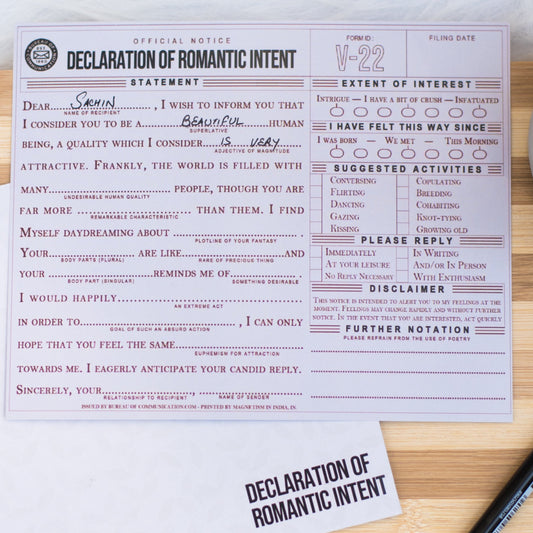 OFFICIAL NOTICE
DECLARATION OF ROMANTIC INTENT
FORM ID:
V-22
FILING DATE
STATEMENT
DEAR....SACHIN............, I WISH TO INFORM YOU THAT
NAME OF RECIPIENT
I CONSIDER YOU TO BE A........BEAUTIFUL........HUMAN
SUPERLATIVE
BEING, A QUALITY WHICH I CONSIDER.....IS VERY......
ADJECTIVE OF MAGNITUDE
ATTRACTIVE. FRANKLY, THE WORLD IS FILLED WITH
MANY.............................. PEOPLE, THOUGH YOU ARE
UNDESIRABLE HUMAN QUALITY
FAR MORE .............................. THAN THEM. I FIND
REMARKABLE CHARACTERISTIC
MYSELF DAYDREAMING ABOUT ..............................
PLOTLINE OF YOUR FANTASY
YOUR.................... ARE LIKE....................AND
BODY PARTS (PLURAL) RARE OF PRECIOUS THING
YOUR ....................REMINDS ME OF....................
BODY PART (SINGULAR) SOMETHING DESIRABLE
I WOULD HAPPILY..............................
AN EXTREME ACT
IN ORDER TO.............................. , I CAN ONLY
GOAL OF SUCH AN ABSURD ACTION
HOPE THAT YOU FEEL THE SAME..............................
EUPHEMISM FOR ATTRACTION
TOWARDS ME. I EAGERLY ANTICIPATE YOUR CANDID REPLY.
SINCERELY, YOUR...................., ....................
RELATIONSHIP TO RECIPIENT NAME OF SENDER
ISSUED BY BUREAU OF COMMUNICATION.COM - PRINTED BY MAGNETISM IN INDIA, IN.
EXTENT OF INTEREST
INTRIGUE — I HAVE A BIT OF CRUSH — INFATUATED
I HAVE FELT THIS WAY SINCE
I WAS BORN — WE MET — THIS MORNING
SUGGESTED ACTIVITIES
CONVERSING COPULATING
FLIRTING BREEDING
DANCING COHABITING
GAZING KNOT-TYING
KISSING GROWING OLD
PLEASE REPLY
IMMEDIATELY IN WRITING
AT YOUR LEISURE AND/OR IN PERSON
NO REPLY NECESSARY WITH ENTHUSIASM
DISCLAIMER
THIS NOTICE IS INTENDED TO ALERT YOU TO MY FEELINGS AT THE
MOMENT. FEELINGS MAY CHANGE RAPIDLY AND WITHOUT FURTHER
NOTICE. IN THE EVENT THAT YOU ARE INTERESTED, ACT QUICKLY
FURTHER NOTATION
PLEASE REFRAIN FROM THE USE OF POETRY
DECLARATION OF
ROMANTIC INTENT